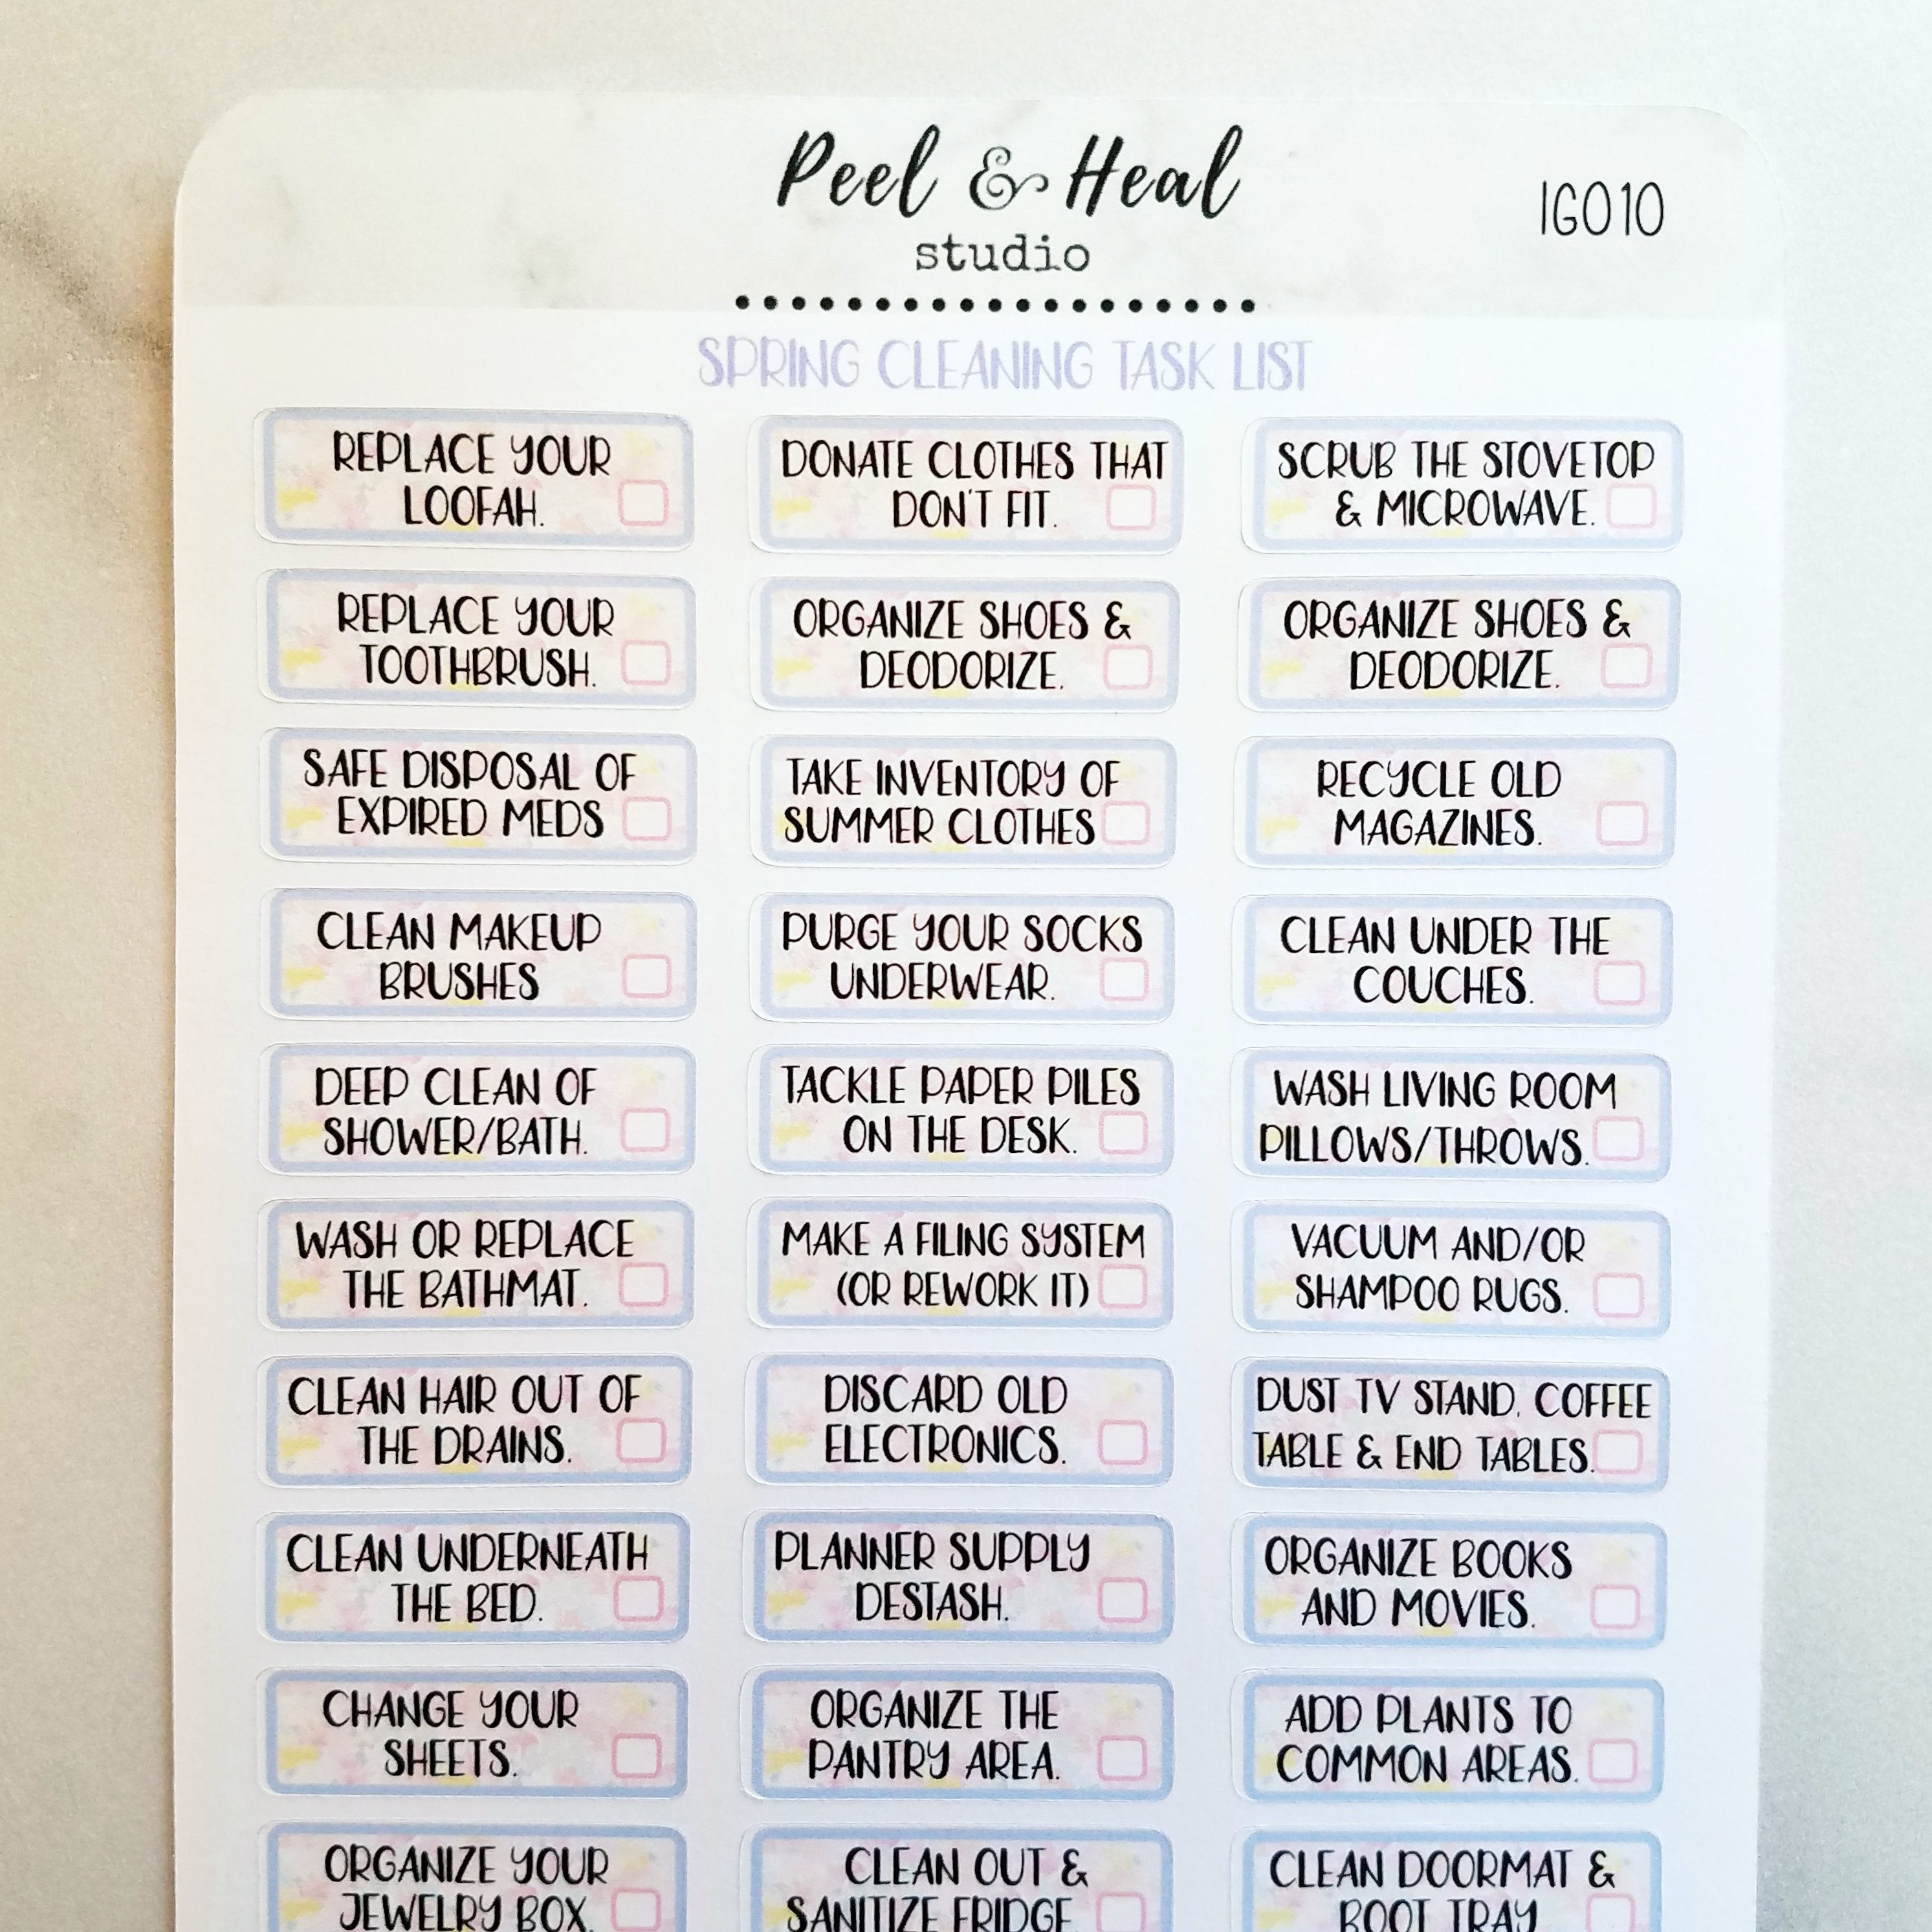 Peel & Heal
studio
IG010
SPRING CLEANING TASK LIST
REPLACE YOUR
LOOFAH.
DONATE CLOTHES THAT
DON'T FIT.
SCRUB THE STOVETOP
& MICROWAVE.
REPLACE YOUR
TOOTHBRUSH.
ORGANIZE SHOES &
DEODORIZE.
ORGANIZE SHOES &
DEODORIZE.
SAFE DISPOSAL OF
EXPIRED MEDS
TAKE INVENTORY OF
SUMMER CLOTHES
RECYCLE OLD
MAGAZINES.
CLEAN MAKEUP
BRUSHES
PURGE YOUR SOCKS
UNDERWEAR.
CLEAN UNDER THE
COUCHES.
DEEP CLEAN OF
SHOWER/BATH.
TACKLE PAPER PILES
ON THE DESK.
WASH LIVING ROOM
PILLOWS/THROWS.
WASH OR REPLACE
THE BATHMAT.
MAKE A FILING SYSTEM
(OR REWORK IT)
VACUUM AND/OR
SHAMPOO RUGS.
CLEAN HAIR OUT OF
THE DRAINS.
DISCARD OLD
ELECTRONICS.
DUST TV STAND, COFFEE
TABLE & END TABLES.
CLEAN UNDERNEATH
THE BED.
PLANNER SUPPLY
DESTASH.
ORGANIZE BOOKS
AND MOVIES.
CHANGE YOUR
SHEETS.
ORGANIZE THE
PANTRY AREA.
ADD PLANTS TO
COMMON AREAS.
ORGANIZE YOUR
JEWELRY BOX.
CLEAN OUT &
SANITIZE FRIDGE
CLEAN DOORMAT &
BOOT TRAY